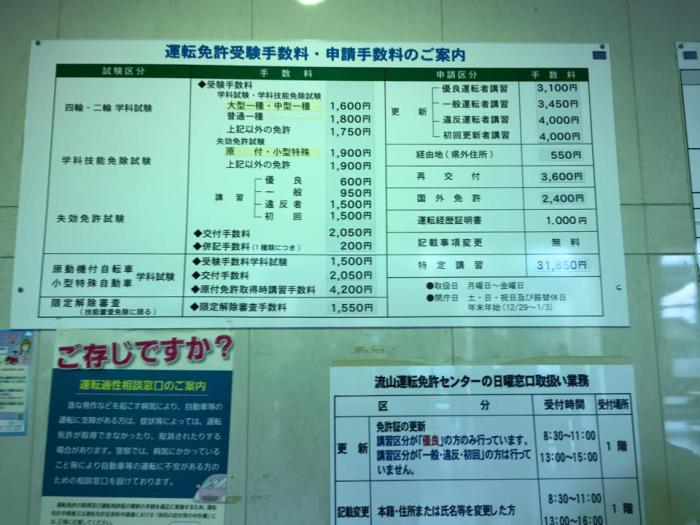 運転免許受験手数料・申請手数料のご案内
試験区分
手数料
四輪・二輪 学科試験
学科技能免除試験
失効免許試験
◆受験手数料
学科試験・学科技能免除試験
大型一種・中型一種 1,600円
普通一種 1,800円
上記以外の免許 1,750円
失効免許試験
原付・小型特殊 1,900円
上記以外の免許 1,900円
講習
優良 600円
一般 950円
違反者 1,500円
初回 1,500円
◆交付手数料 2,050円
◆併記手数料(1種類につき) 200円
原動機付自転車
小型特殊自動車
学科試験
◆受験手数料学科試験 1,500円
◆交付手数料 2,050円
◆原付免許取得時講習手数料 4,200円
限定解除審査
(技能審査免除に限る)
◆限定解除審査手数料 1,550円
申請区分
手数料
更新
優良運転者講習 3,100円
一般運転者講習 3,450円
違反運転者講習 4,000円
初回更新者講習 4,000円
経由地(県外住所) 550円
再交付 3,600円
国外免許 2,400円
運転経歴証明書 1,000円
記載事項変更 無料
特定講習 31,850円
●取扱日 月曜日〜金曜日
●閉庁日 土・日・祝日及び振替休日
年末年始(12/29〜1/3)
ご存じですか?
運転適性相談窓口のご案内
急な発作などを起こす病気により、自動車等の
運転に支障がある方は、症状等によっては、運転
免許が取得できなかったり、取消されたりする
場合があります。警察では、病気にかかっている
こと等により自動車等の運転に不安がある方の
ための相談窓口を設けております。
流山運転免許センターの日曜窓口取扱い業務
区分
受付時間
受付場所
更新
免許証の更新
講習区分が「優良」の方のみ行っています。
講習区分が「一般・違反・初回」の方は行って
いません。
8:30〜11:00
13:00〜15:00
1階
記載変更
本籍・住所または氏名等を変更した方
8:30〜11:00
13:00〜16:00
1階